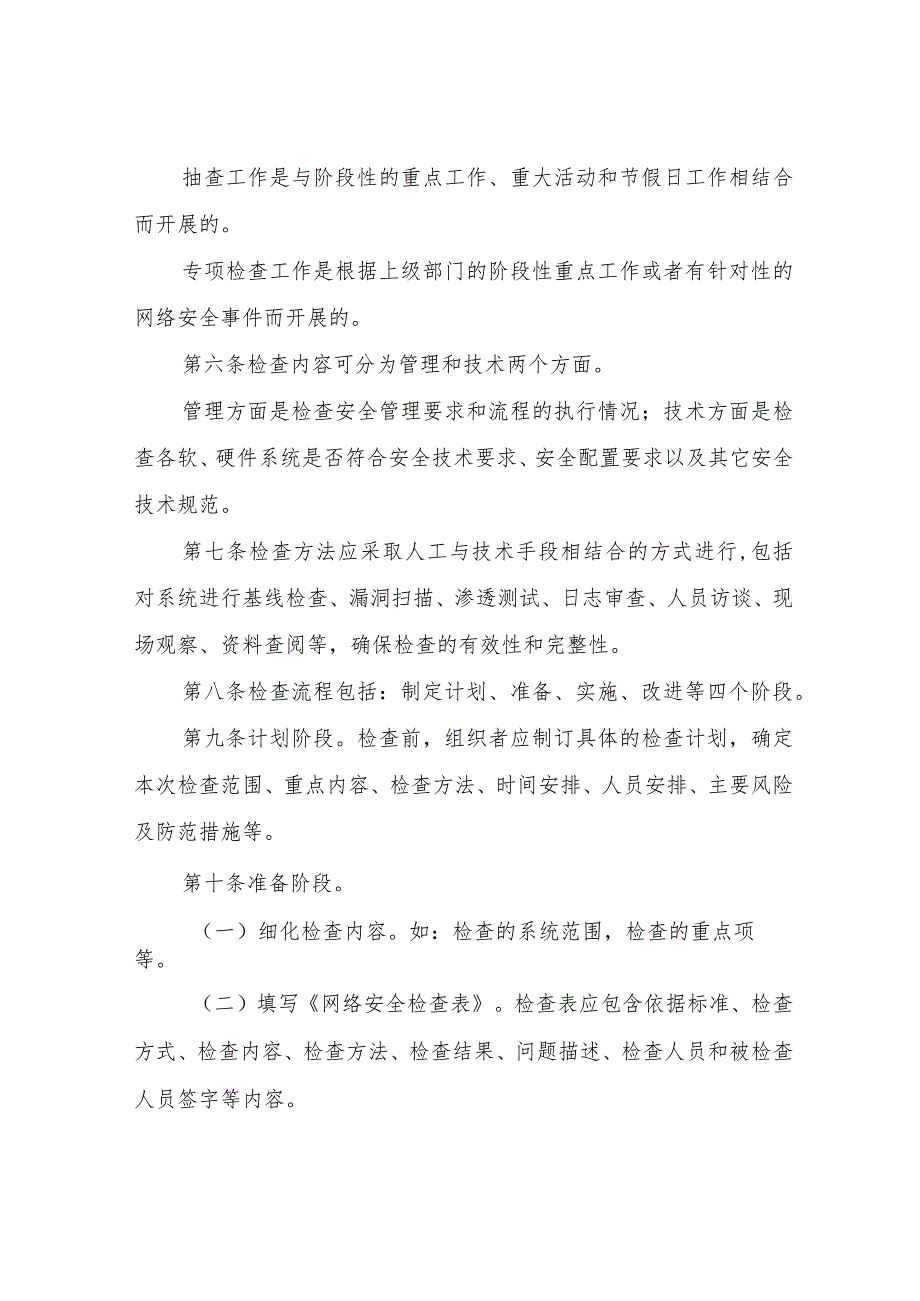 抽查工作是与阶段性的重点工作、重大活动和节假日工作相结合
而开展的。
专项检查工作是根据上级部门的阶段性重点工作或者有针对性的
网络安全事件而开展的。
第六条检查内容可分为管理和技术两个方面。
管理方面是检查安全管理要求和流程的执行情况；技术方面是检
查各软、硬件系统是否符合安全技术要求、安全配置要求以及其它安全
技术规范。
第七条检查方法应采取人工与技术手段相结合的方式进行,包括
对系统进行基线检查、漏洞扫描、渗透测试、日志审查、人员访谈、现
场观察、资料查阅等，确保检查的有效性和完整性。
第八条检查流程包括：制定计划、准备、实施、改进等四个阶段。
第九条计划阶段。检查前，组织者应制订具体的检查计划，确定
本次检查范围、重点内容、检查方法、时间安排、人员安排、主要风险
及防范措施等。
第十条准备阶段。
（一）细化检查内容。如：检查的系统范围，检查的重点项
等。
（二）填写《网络安全检查表》。检查表应包含依据标准、检查
方式、检查内容、检查方法、检查结果、问题描述、检查人员和被检查
人员签字等内容。